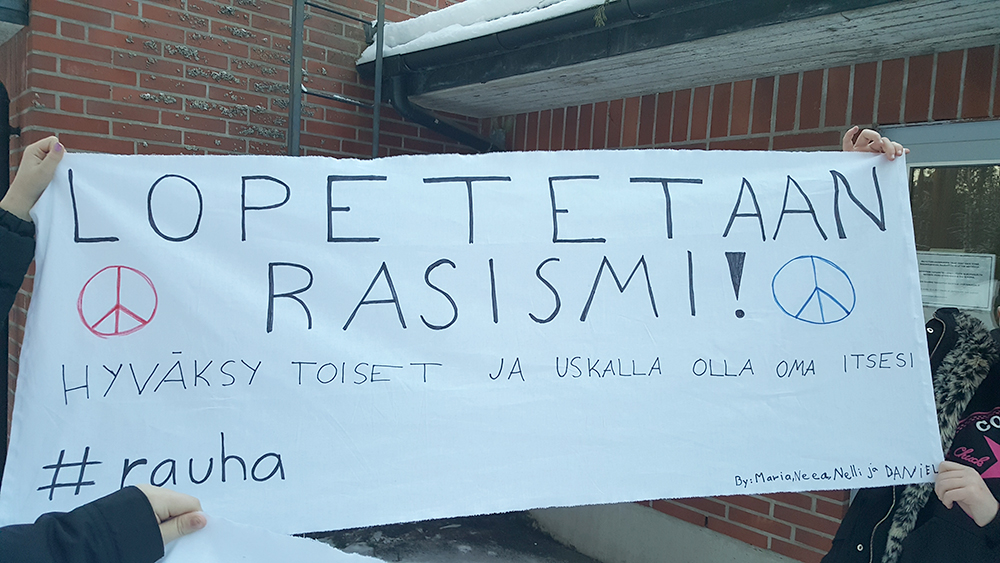 LOPETETAAN
RASISMI!
HYVÄKSY TOISET JA USKALLA OLLA OMA ITSESI
#rauha
By: Maria, Neea, Nelli ja DANiEL